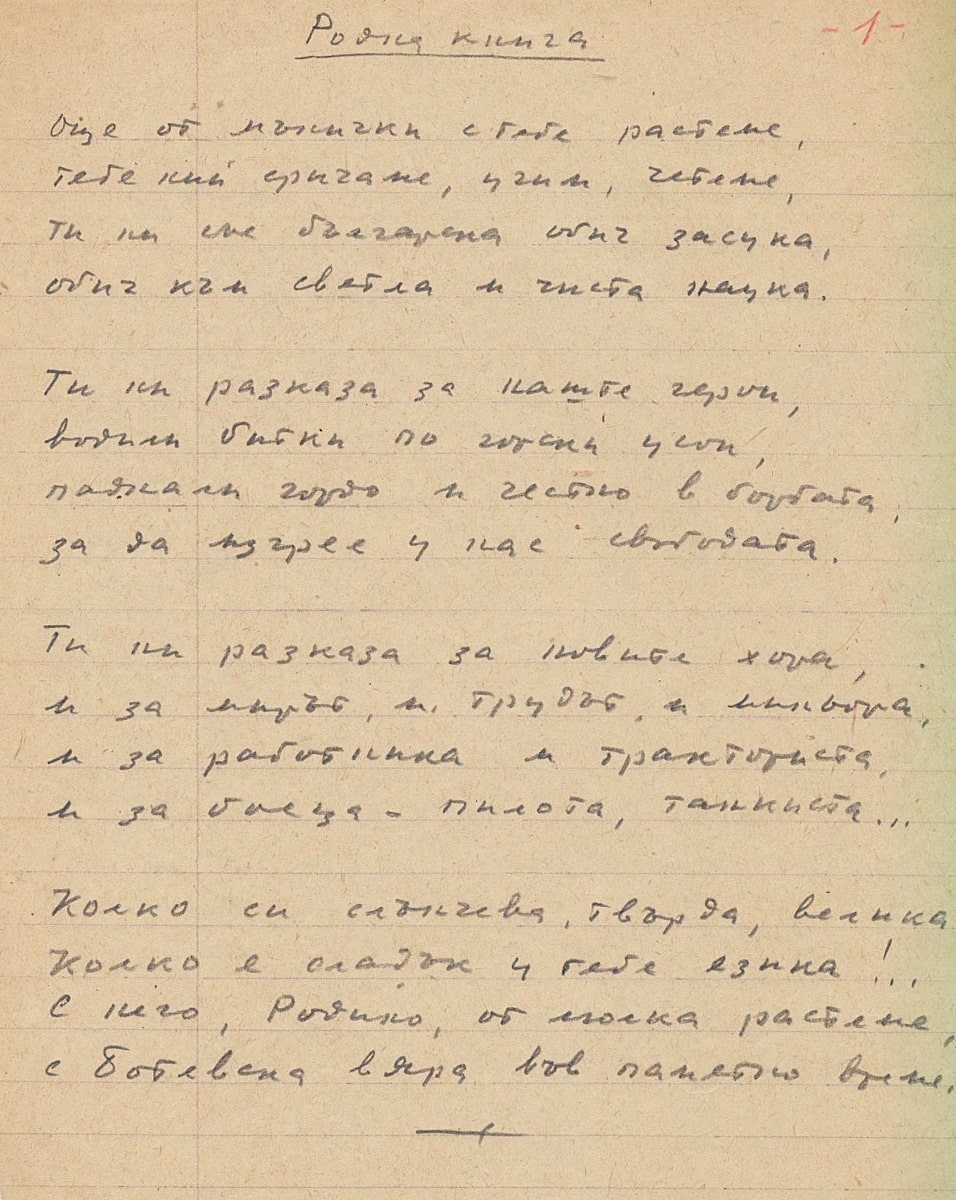 Родна книга
- 1 -
Още от мънички с тебе растеме,
тебе ний сричаме, учим, четеме,
ти ни със българска обич засука,
обич към светла и чиста наука.
Ти ни разказа за наште герои,
водили битки по горски усои,
паднали гордо и честно в борбата,
за да изгрее у нас свободата.
Ти ни разказа за новите хора,
и за мирът, и трудът, и миньора,
и за работника и тракториста,
и за боеца - пилота, танкиста...
Колко си слънчева, твърда, велика
Колко е сладък у тебе езика!..
С него, Родино, от люлка растеме,
с Ботевска вяра във паметно време.